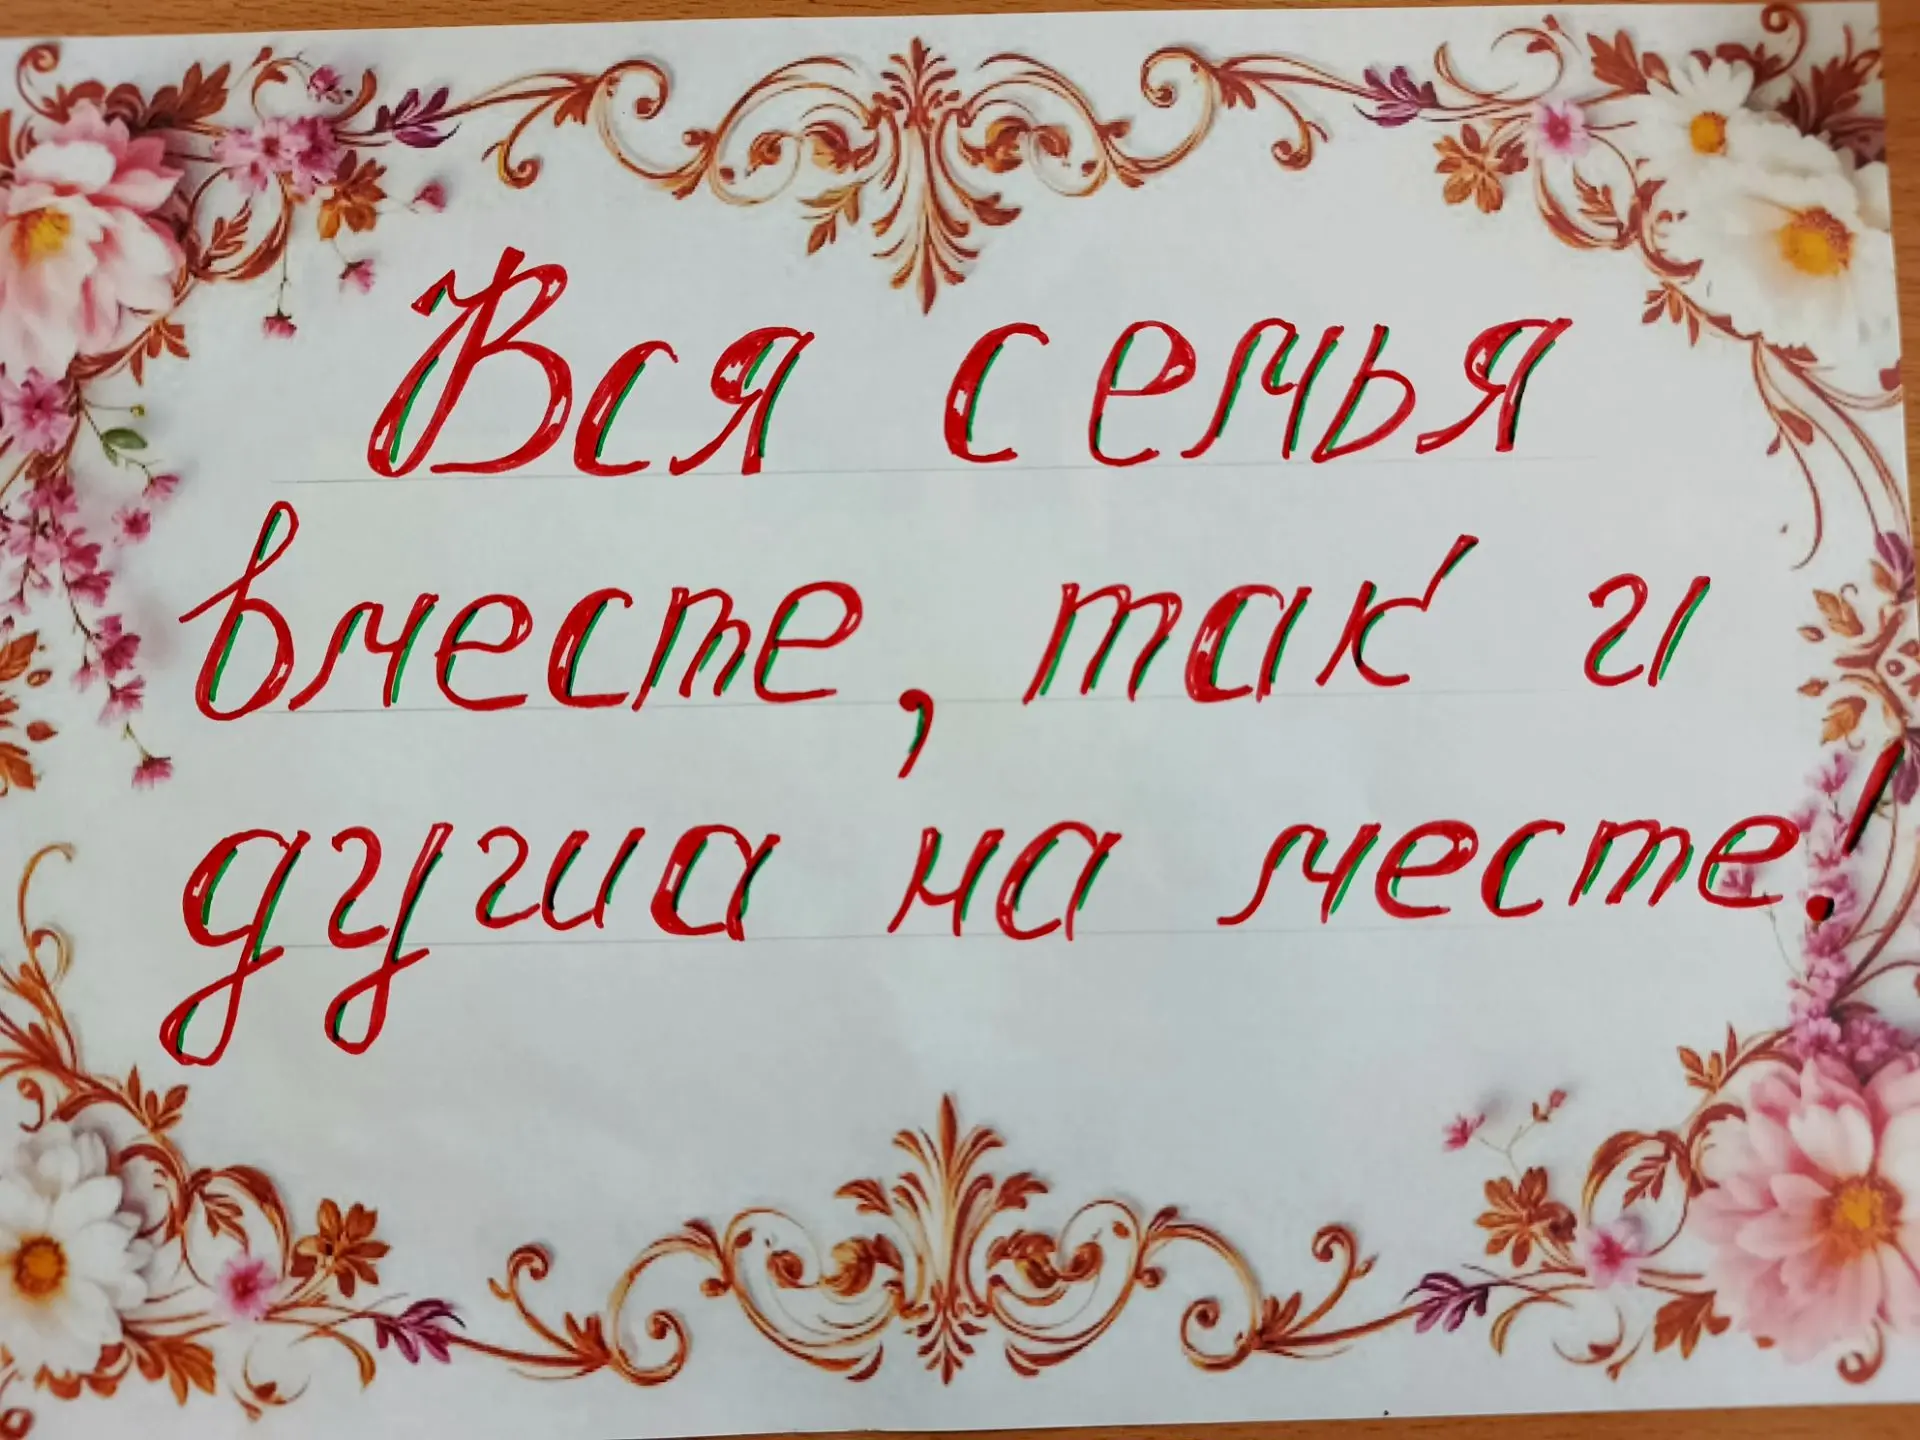 Вся семья
вместе, так и
душа на месте!